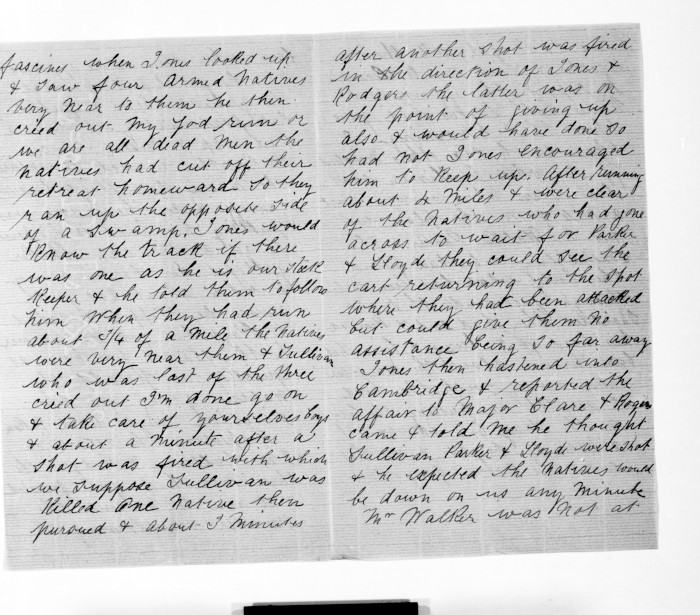 fascines when Jones looked up
& saw four armed Natives
very near to them he then
cried out My God run or
we are all dead Men the
Natives had cut off their
retreat homeward so they
ran up the opposite side
of a Swamp. Jones would
Know the track if there
was one as he is our Stock
Keeper & he told them to follow
him When they had run
about 3/4 of a Mile the Natives
were very near them & Sullivan
who was last of the three
cried out I'm done go on
& take care of yourselves boys
& about a Minute after a
shot was fired with which
we suppose Sullivan was
Killed One Native then
pursued & about 3 Minutes
after another shot was fired
in the direction of Jones &
Rodgers the latter was on
the point of giving up
also & would have done so
had not Jones encouraged
him to Keep up. After running
about 4 Miles & were clear
of the Natives who had gone
across to wait for Parker
& Lloyde they could see the
cart returning to the spot
where they had been attacked
but could give them No
assistance being so far away
Jones then hastened into
Cambridge & reported the
affair to Major Clare & Roger
came & told Me he thought
Sullivan Parker & Lloyde were shot
& he expected the Natives would
be down on us any Minute
Mr Walker was Not at